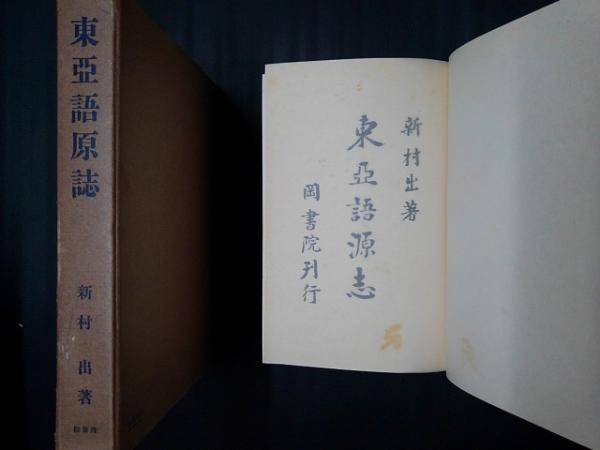 東亞語原誌
新村 出著
岡書院
新村出著
東亞語源志
岡書院刊行